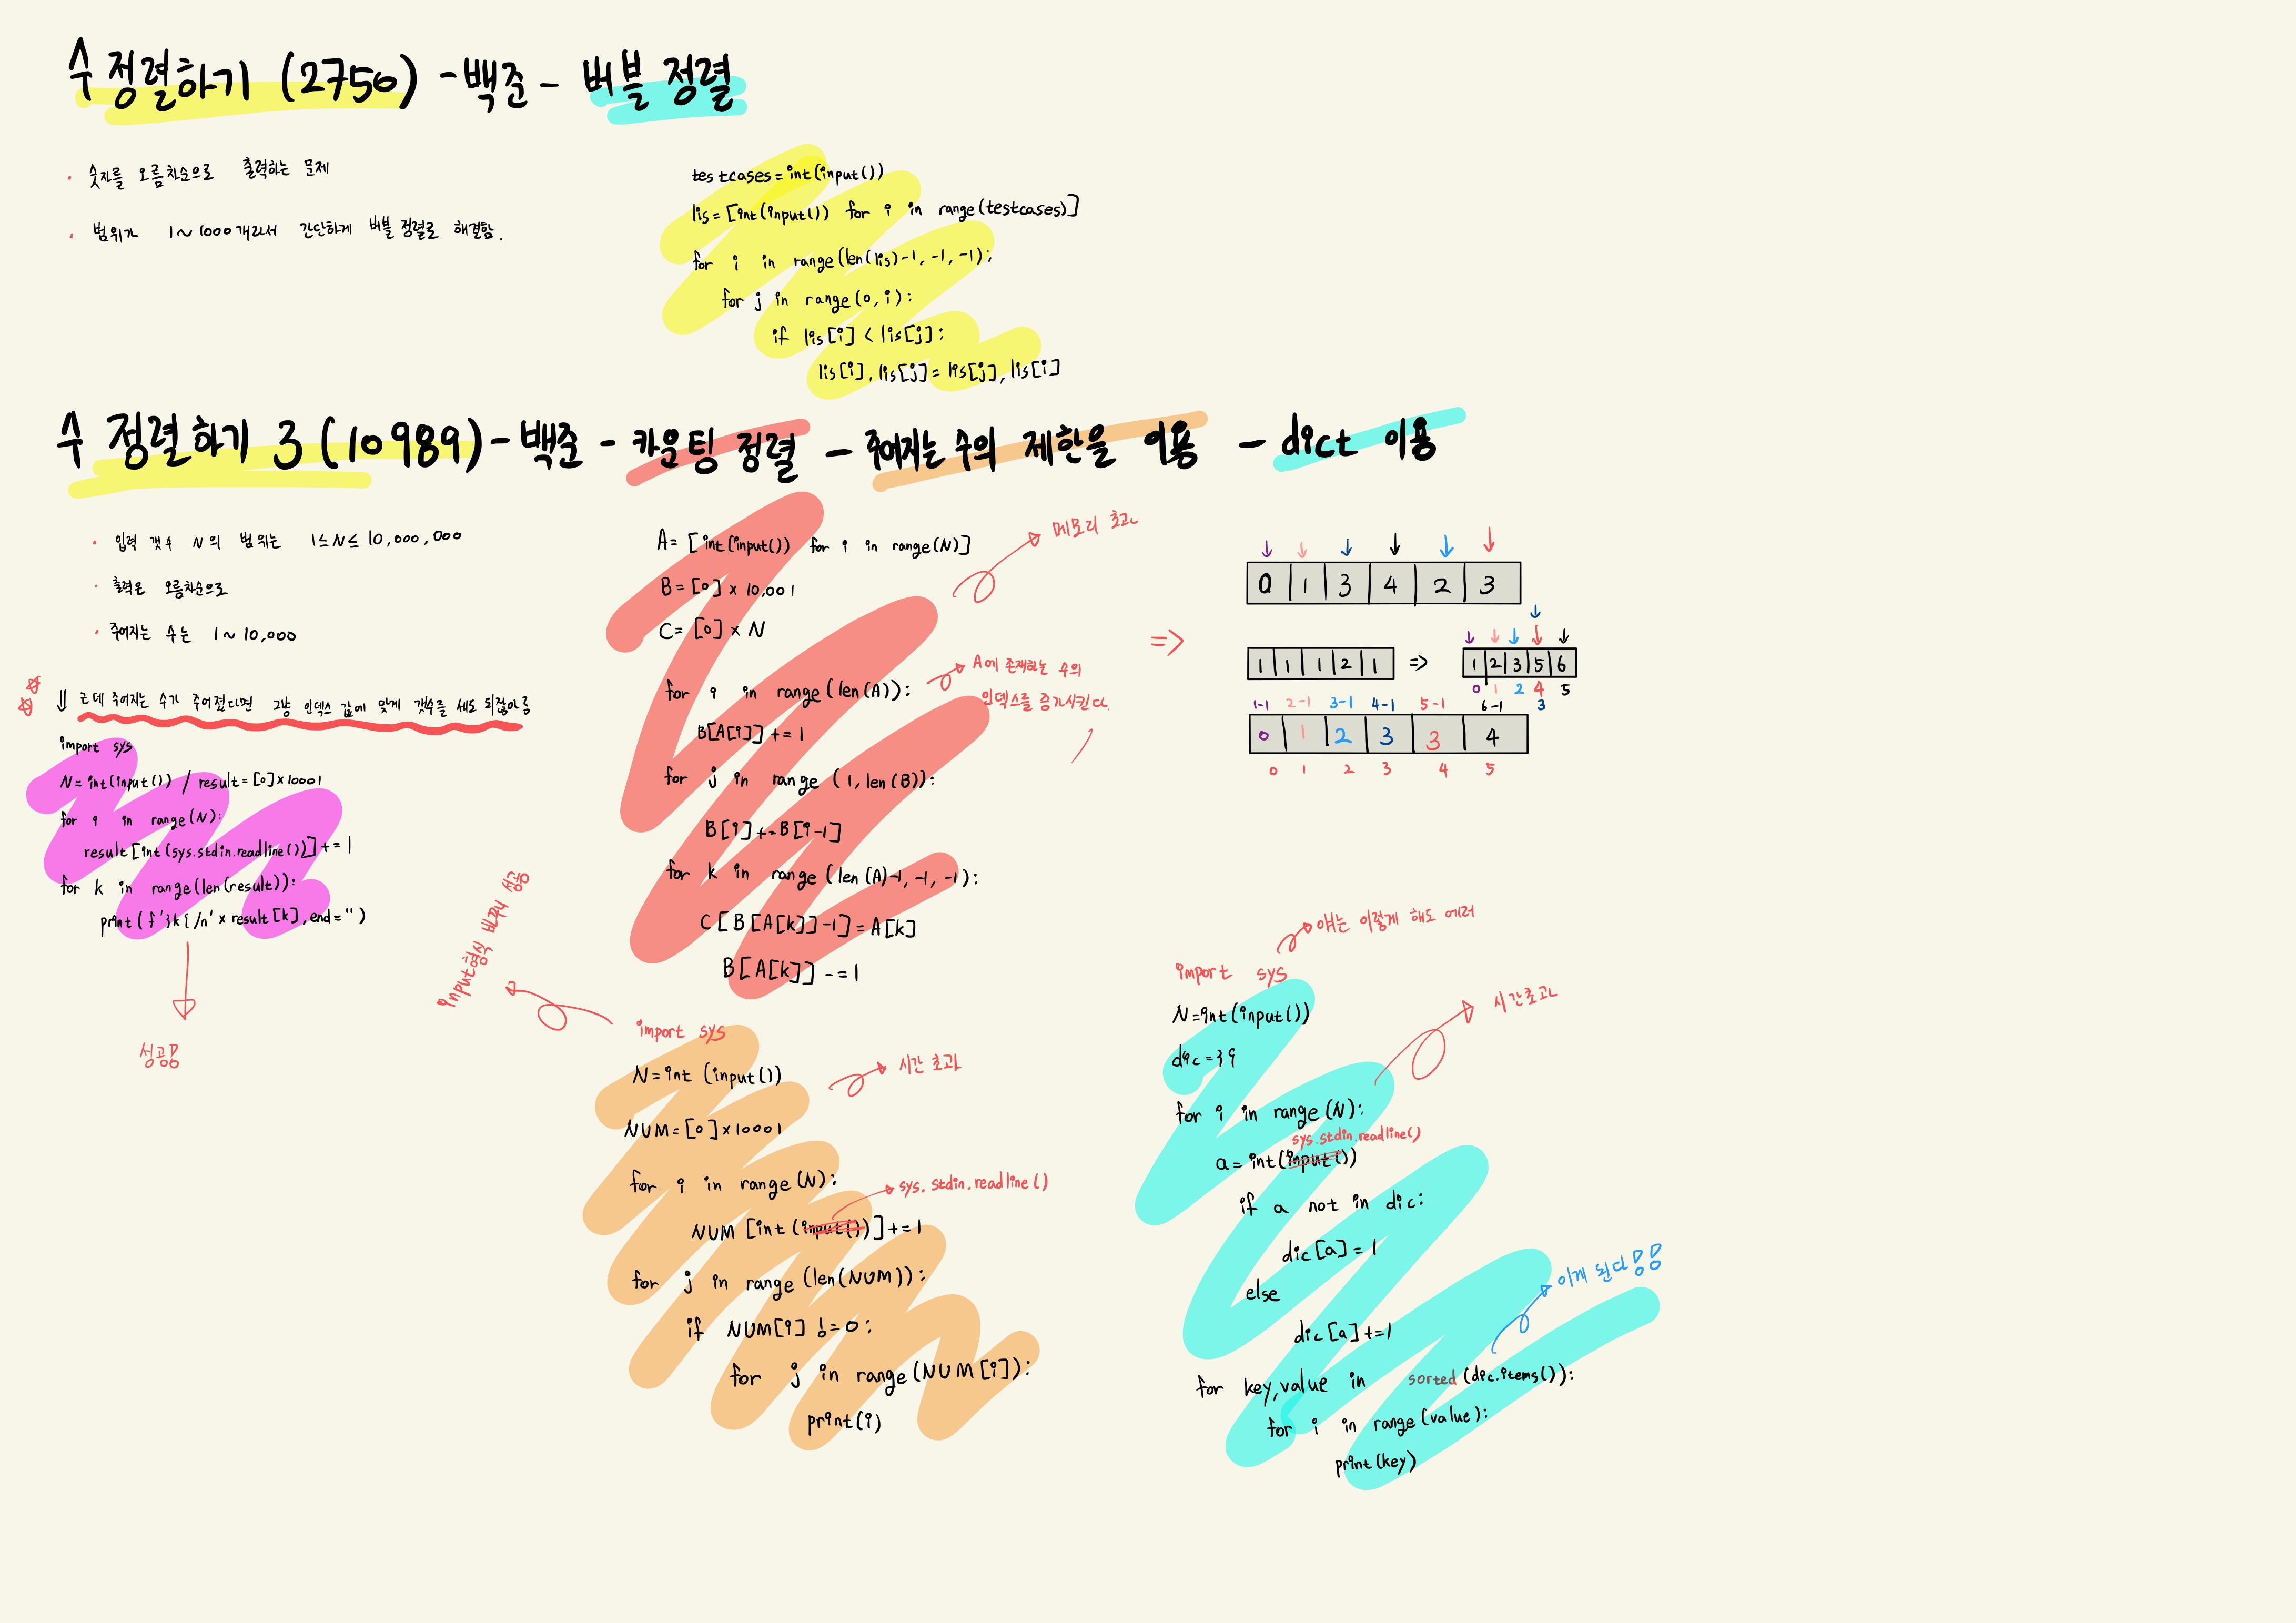 수 정렬하기 (2750) - 백준 - 버블 정렬
· 숫자를 오름차순으로 출력하는 문제
· 범위가 1~1000개라서 간단하게 버블 정렬로 해결함.
testcases=int(input())
lis=[int(input()) for i in range(testcases)]
for i in range(len(lis)-1, -1, -1):
for j in range(0, i):
if lis[i] < lis[j]:
lis[i], lis[j] = lis[j], lis[i]
수 정렬하기 3 (10989) - 백준 - 카운팅 정렬 - 주어지는 수의 제한을 이용 - dict 이용
· 입력 갯수 N의 범위는 1≤N≤10,000,000
· 출력은 오름차순으로
· 주어지는 수는 1~10,000
⇓ 근데 주어지는 수가 주어졌다면 그냥 인덱스 값에 맞게 갯수를 세도 되잖아?
import sys
N=int(input()) / result=[0]×10001
for i in range(N):
result[int(sys.stdin.readline())]+=1
for k in range(len(result)):
print(f'}k{/n'×result[k], end='')
성공!
A= [int(input()) for i in range(N)]
메모리 초과
B=[0] × 10,001
C= [0] × N
for i in range(len(A)):
A에 존재하는 수의
인덱스를 증가시킨다.
B[A[i]] += 1
for j in range (1, len(B)):
B[i] += B[i-1]
for k in range (len(A)-1, -1, -1):
C[B[A[k]]-1]=A[k]
B[A[k]] -=1
=>
0 1 3 4 2 3
1 1 1 2 1 => 1 2 3 5 6
0 1 2 4 5
3
1-1 2-1 3-1 4-1 5-1 6-1
0 1 2 3 3 4
0 1 2 3 4 5
input형식 바꾸니 성공
import sys
N=int (input())
시간 초과
NUM=[0]×10001
for i in range(N):
sys.stdin.readline()
NUM [int(input())]+=1
for j in range (len(NUM)):
if NUM[i] != 0:
for j in range(NUM[i]):
print(i)
얘는 이렇게 해도 에러
import sys
N=int(input())
시간초과
dic=}{
for i in range(N):
sys.stdin.readline()
a=int(input())
if a not in dic:
dic[a]=1
else
dic[a]+=1
이게 된다!!
for key,value in sorted(dic.items()):
for i in range(value):
print(key)